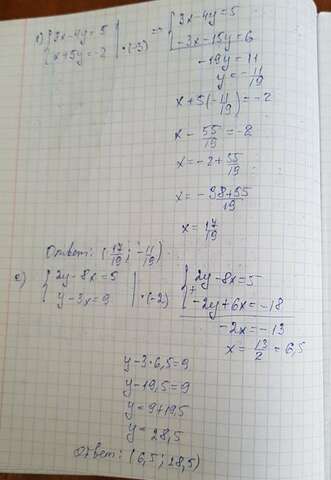 в) { 3x-4y=5 | => { 3x-4y=5
x+5y=-2 | •(-3) -3x-15y=6
-19y=11
y=-11/19
x+5(-11/19)=-2
x-55/19=-2
x=-2+55/19
x=-38+55/19
x=17/19
Ответ: (17/19; -11/19)
с) { 2y-8x=5 | { 2y-8x=5
y-3x=9 | •(-2) + -2y+6x=-18
-2x=-13
x=13/2=6,5
y-3•6,5=9
y-19,5=9
y=9+19,5
y=28,5
Ответ: (6,5; 28,5)